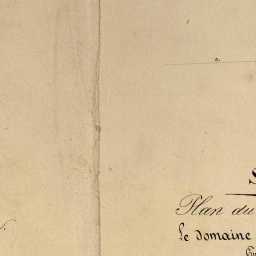 S
Plan du
le domaine